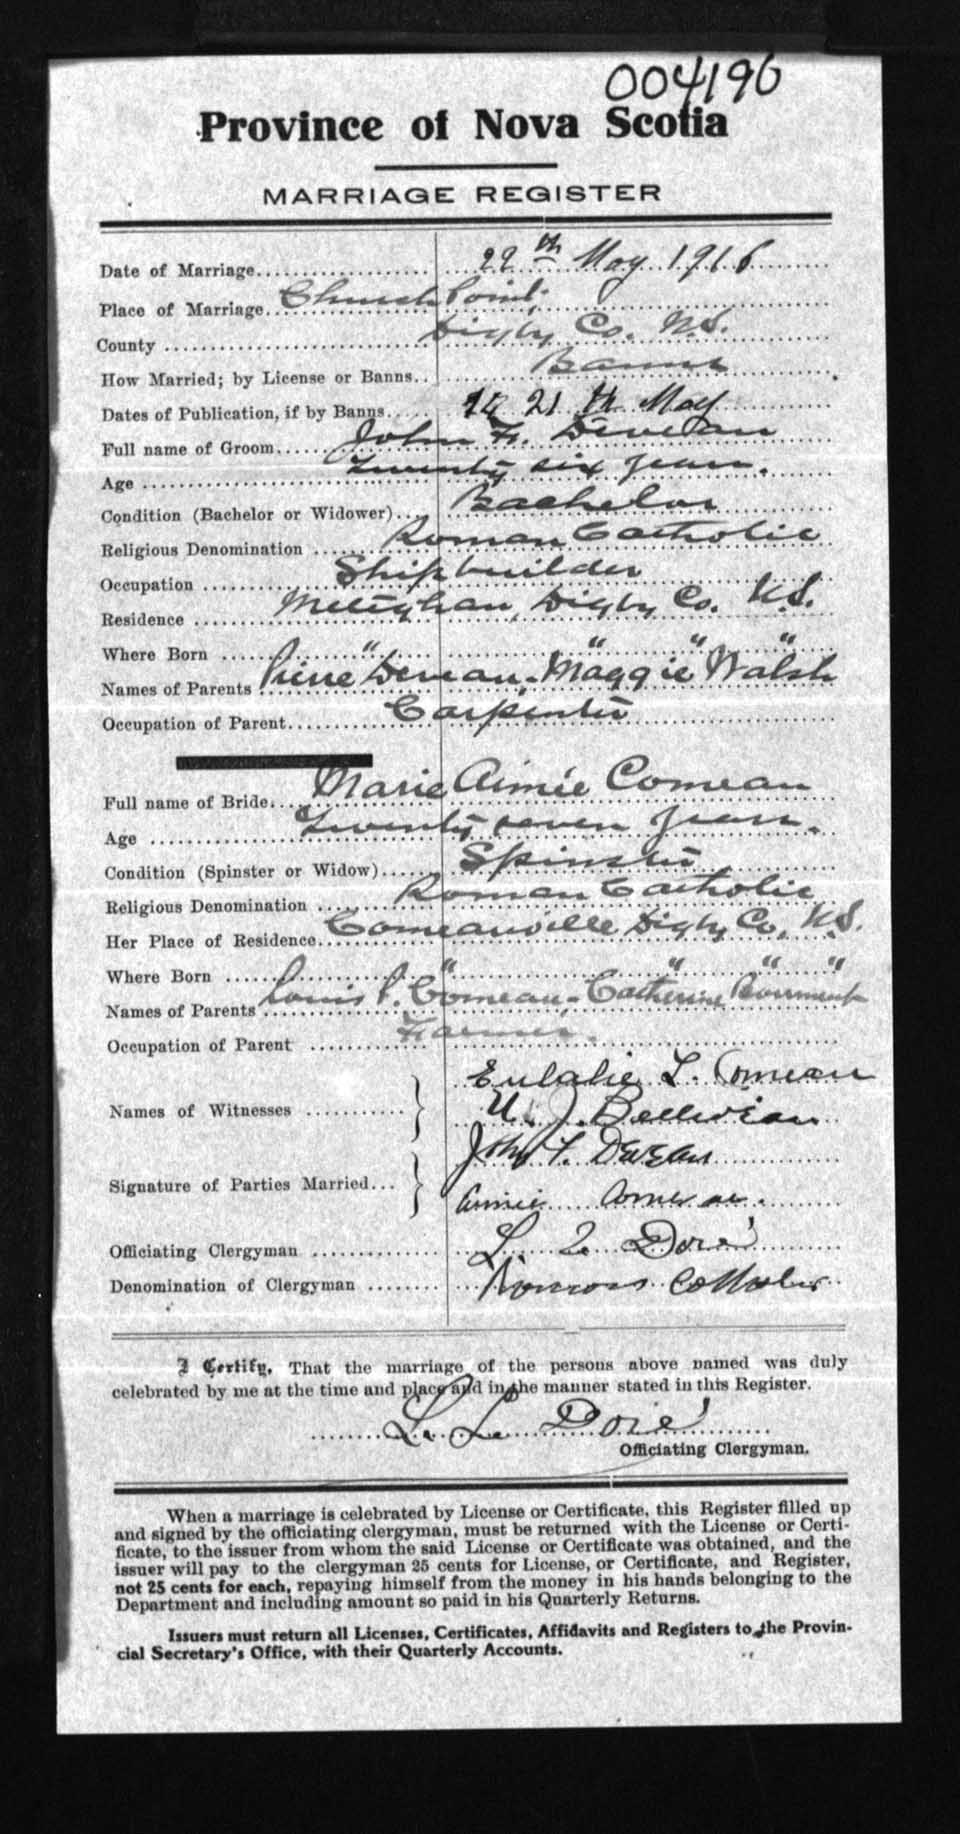 004196
Province of Nova Scotia
MARRIAGE REGISTER
Date of Marriage 29th May 1916
Place of Marriage Church Point
County Digby Co. N.S.
How Married; by License or Banns Banns
Dates of Publication, if by Banns 21 th May
Full name of Groom John F. Deveau
Age Twenty six years.
Condition (Bachelor or Widower) Bachelor
Religious Denomination Roman Catholic
Occupation Shipbuilder
Residence Meteghan, Digby Co. N.S.
Where Born " " " "
Names of Parents Pierre Deveau - Maggie Walsh
Occupation of Parent Carpenter
Full name of Bride Marie Aimée Comeau
Age Twenty seven years.
Condition (Spinster or Widow) Spinster
Religious Denomination Roman Catholic
Her Place of Residence Comeauville Digby Co. N.S.
Where Born " " " "
Names of Parents Louis P. Comeau - Catherine
Occupation of Parent Farmer.
Names of Witnesses Eulalie L. Comeau
U. J. Belliveau
Signature of Parties Married John F. Deveau
Aimie Comeau.
Officiating Clergyman L. Doré
Denomination of Clergyman Roman Catholic
I Certify, That the marriage of the persons above named was duly
celebrated by me at the time and place and in the manner stated in this Register.
L. L. Doré
Officiating Clergyman.
When a marriage is celebrated by License or Certificate, this Register filled up
and signed by the officiating clergyman, must be returned with the License or Certi-
ficate, to the issuer from whom the said License or Certificate was obtained, and the
issuer will pay to the clergyman 25 cents for License, or Certificate, and Register,
not 25 cents for each, repaying himself from the money in his hands belonging to the
Department and including amount so paid in his Quarterly Returns.
Issuers must return all Licenses, Certificates, Affidavits and Registers to the Provin-
cial Secretary's Office, with their Quarterly Accounts.